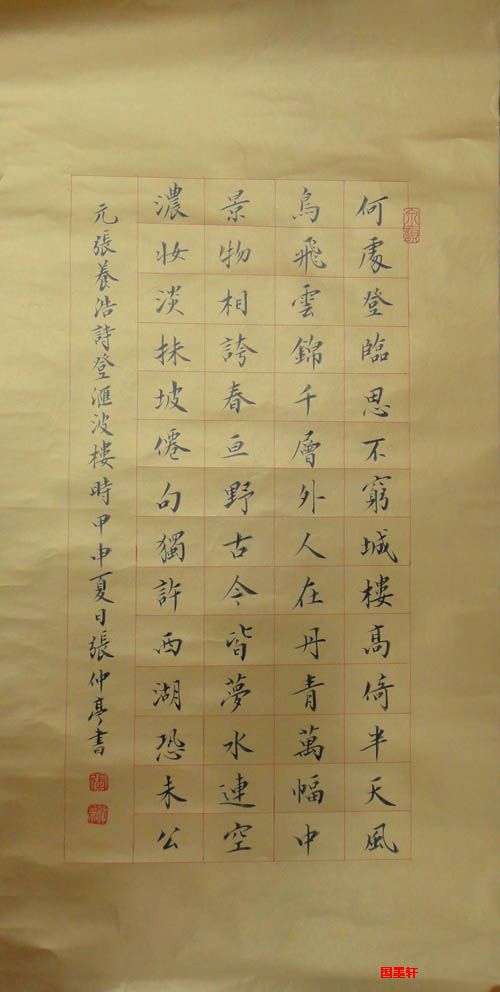 何處登臨思不窮城樓高倚半天風
鳥飛雲錦千層外人在丹青萬幅中
景物相誇春亘野古今皆夢水連空
濃妝淡抹坡僊句獨許西湖恐未公
元張養浩詩登滙波樓時甲申夏日張仲亭書
国墨轩